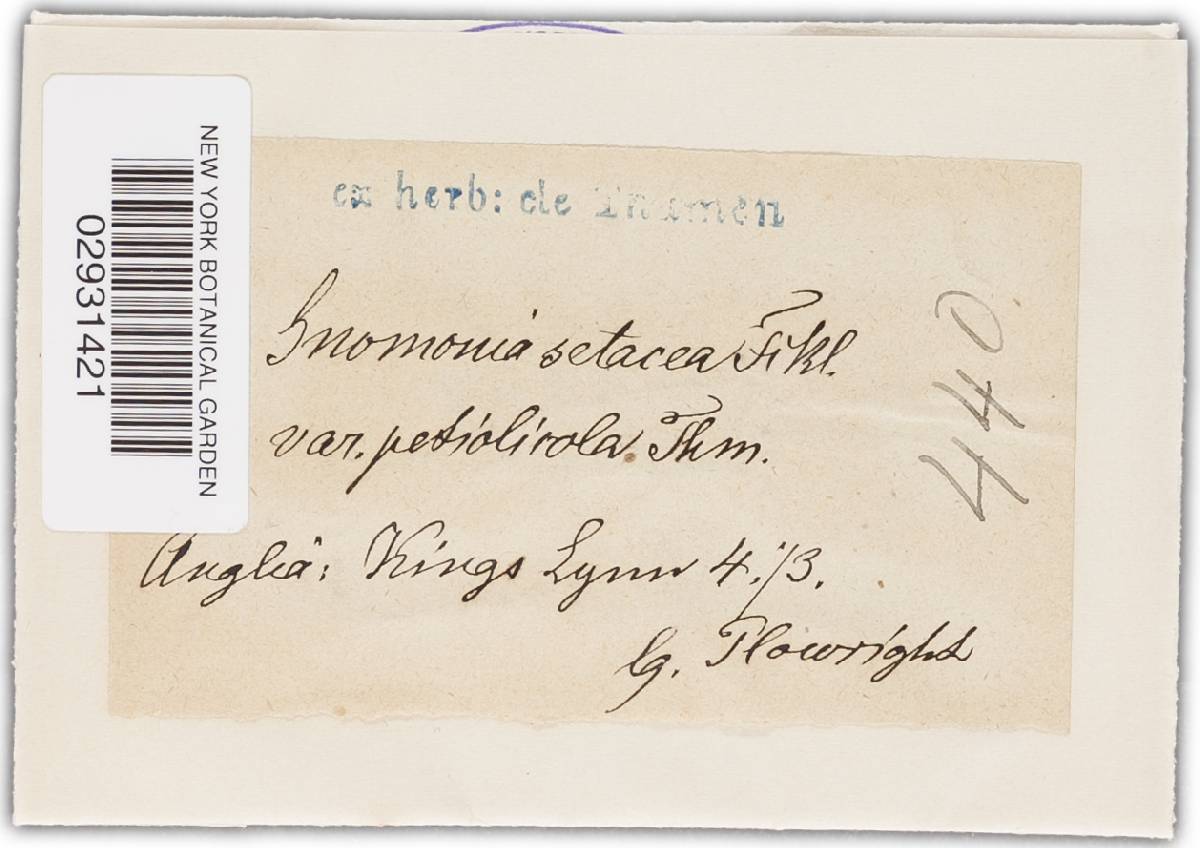 NEW YORK BOTANICAL GARDEN
02931421
ex herb: de Thümen
Gnomonia setacea Fckl.
var. petiolicola Thm.
Anglia: Kings Lynn 4./3.
lg. Plowright
440